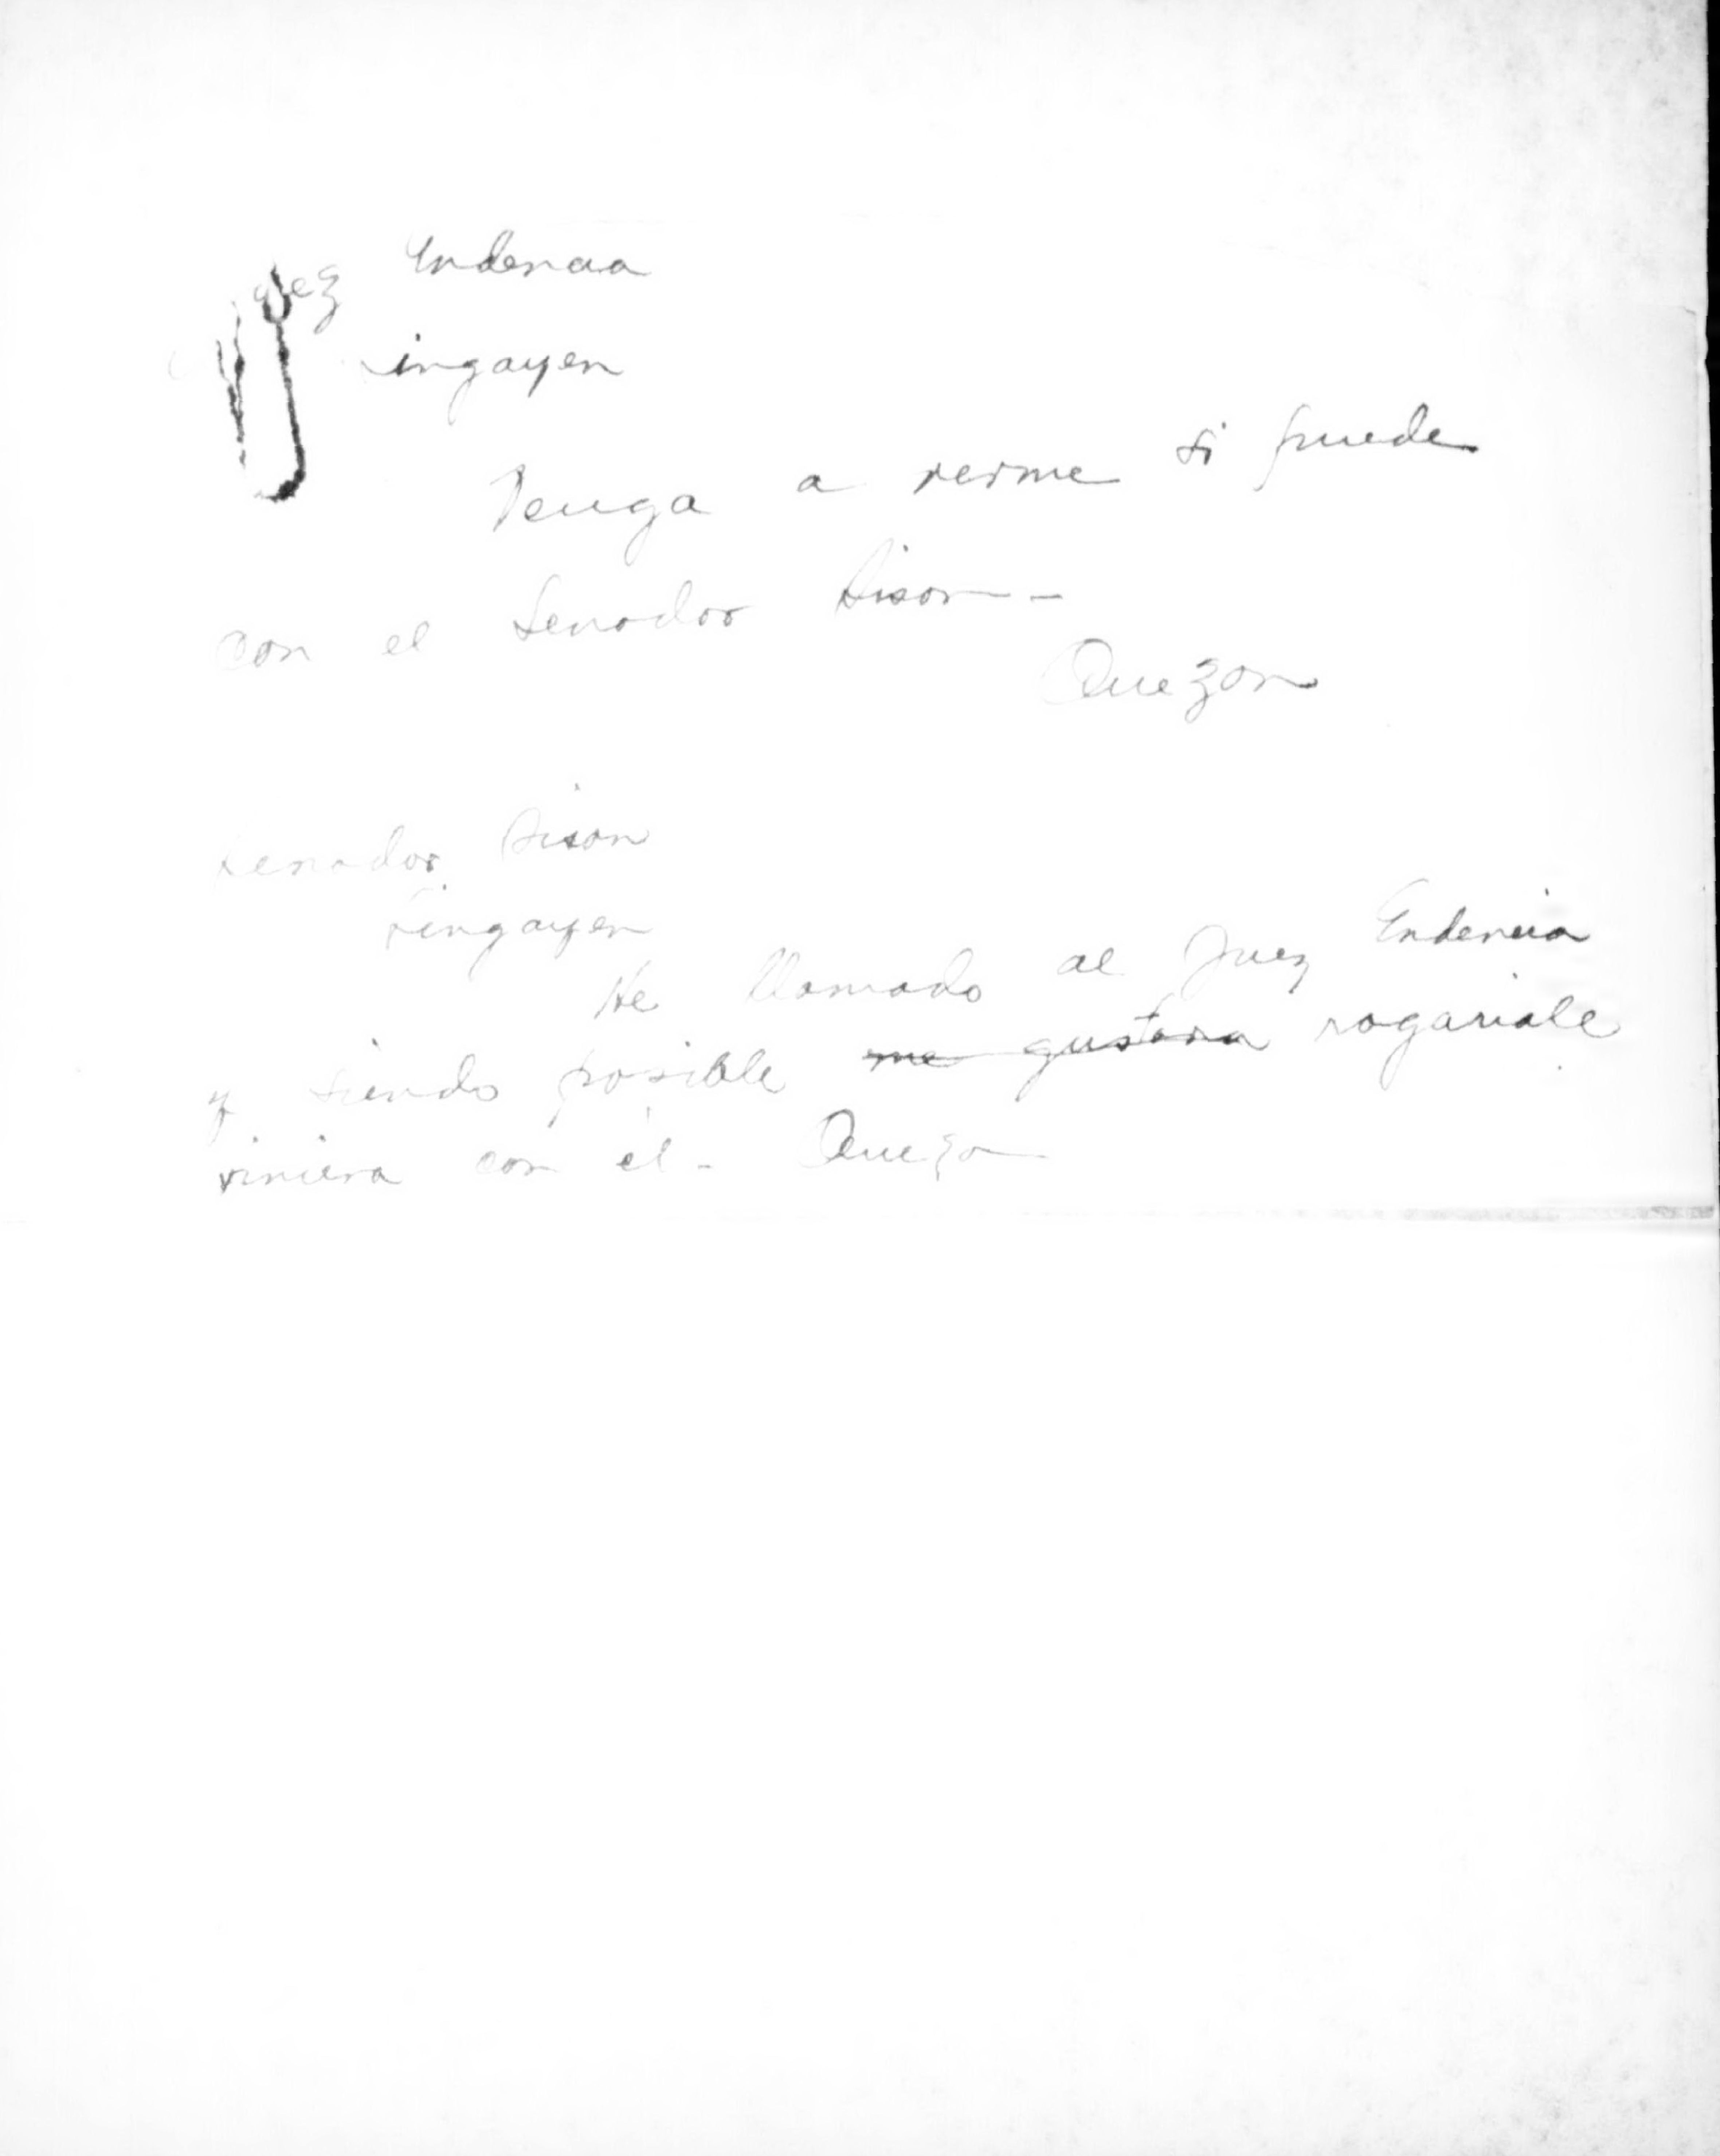 Juez Endencia
Lingayen
Venga a verme si puede
con el Senador Sison -
Quezon
Senador Sison
Lingayen
He llamado al Juez Endencia
y siendo posible ~~me gustara~~ rogariale
viniera con él - Quezon